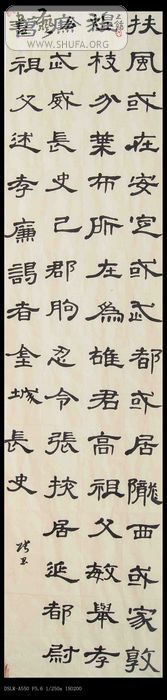 WWW.SHUFA.ORG
扶風或在安定或武都或居隴西或家敦
煌枝分葉布所在為雄君高祖父敏舉孝
廉武威長史巴郡朐忍令張掖居延都尉
曾祖父述孝廉謁者金城長史
DSLR-A550 F5.6 1/250s ISO200